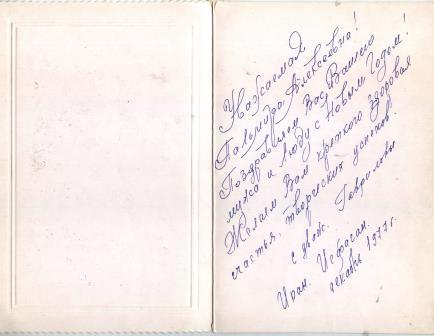 Уважаемая
Пальмира Алексеевна!
Поздравляем Вас, Вашего
мужа и Люду с Новым Годом!
Желаем Вам крепкого здоровья
счастья, творческих успехов.
с уваж. Гавриловы
Иран. Исфаган.
декабрь 1977 г.